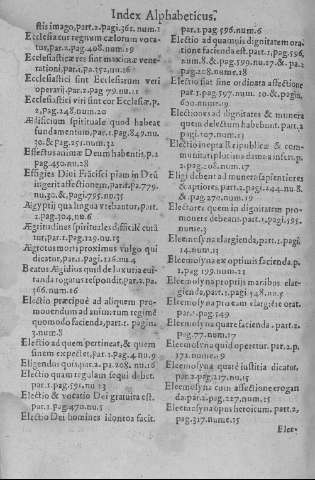 Index Alphabeticus.
stis imago, part.2. pagi.361. num.1
Ecclesiastæ regnum cælorum vocatur, par.2. pag.408. nu.19
Ecclesiasticæ res sunt maximæ venerationi, par.1. pa.152. nu.16
Ecclesiastici sunt Ecclesiarum veri operarij. par.2. pag 79. nu.11
Ecclesiastici viri sunt cor Ecclesiæ, p.2. pag.148. num.20
Ædificium spirituale quod habeat fundamentum, par.1. pag.849. nu.30. & pag.251. num.32
Effectus animæ Deum habentis, p.2 pag.450. nu.28
Effigies Diui Fräcisci piam in Deũ ingerit affectionem, par.1. pa.779. nu.30. & pag.795. nu.35
Ægyptij qua lingua vtebantur, part.2. pag.304. nu.6
Ægritudines spirituales difficile curätur, par.1. pag.139. nu.15
Ægrotus morti proximus vulgo qui dicatur, par.1. pagi.126. nu.4
Beatus Ægidius quid de luxuria euitanda rogatus respondit, par.2. pa.366. num.16
Electio præcipuè ad aliquem promouendum ad animarum regimẽ quomodo facienda, part.1. pagin.3. num.8
Electio ad quem pertineat, & quem finem expectet, par.1. pag.4. nu.9
Eligendus quis, par.2. pa.208. nu.16
Electio quam regulam sequi debet. par.1. pag.591. nu 13
Electio & vocatio Dei gratuita est. par.1. pag.470. nu.5
Electio Dei homines idoneos facit.
par.1. pag.596. num.6
Electio ad quamuis dignitatem oratione facienda est, part.1. pag.596, num.8. & pag.599. nu.7. & par.2 pag.208. nume.18
Electio fiat sine ordinata affectione par.1. pag.597. num.10. & pagin. 600. num.19
Electiones ad dignitates & munera quem delectum habebunt. part.2 pagi.107. num.13
Electio inepta Reipublicæ & communitati plurima damna infert, p.2. pag.208. num.17
Eligi debent ad munera sapientieres & aptiores, part.2. pagi.144. nu.8. & pag.270. num.19
Electores quem in dignitatem promouere debeant, part.1. pagi.595. nume.3
Eleemosyna elargienda, part.1. pagi.14. num.13
Eleemosyna ex optimis facienda p.1. pag 199. num.21
Eleemosyna proprijs maribus elargienda, part.1. pagi 548. nu.5
Eleemosyna pro eam elargitæ orat. par.1. pag.549
Eleemosyna quare facienda, part.2. pag.77. num.17
Eleemosyna quid operetur, par.2. p.372. nume.9
Eleemosyna quare iustitia dicatur, par.2. pag.217. nu.15
Eleemosyna com affectione eroganda par.2. pag.227. num.15
Eleemosyna opus heroicum, part.2, pag.317. nume.15
Elee-